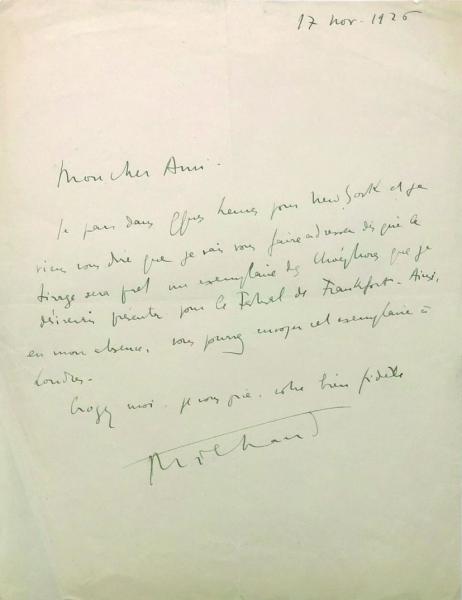 17 nov. 1926
Mon cher Ami.
Je pars dans qques heures pour New York et je
viens vous dire que je vais vous faire adresser dès que le
tirage sera prêt un exemplaire des Choéphores que je
désirerais présenter pour le Festival de Frankfort. Ainsi,
en mon absence, vous pourrez envoyer cet exemplaire à
Londres.
Croyez moi, je vous prie, votre bien fidèle
Milhaud